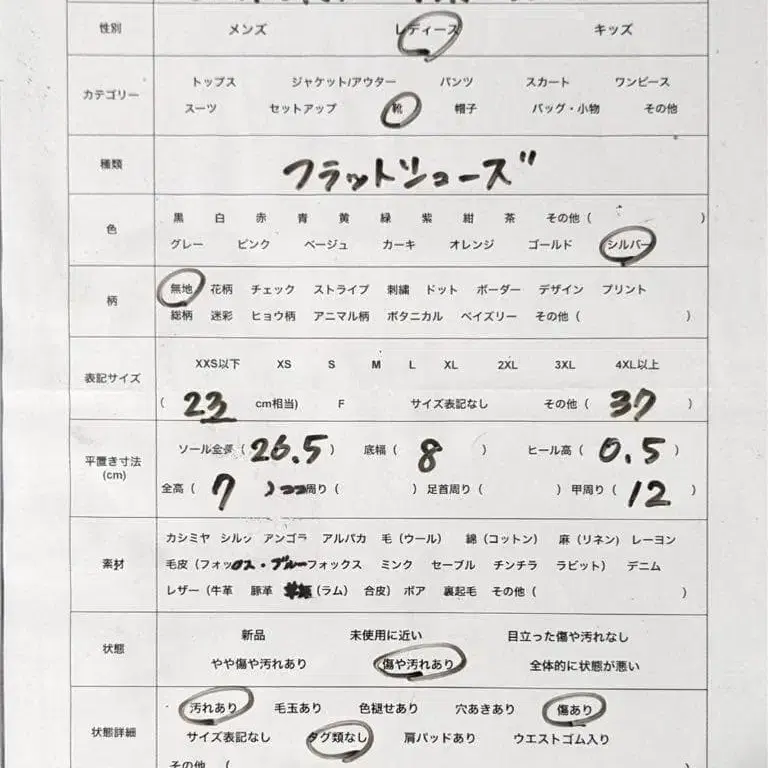 性別 メンズ レディース キッズ
カテゴリー
トップス ジャケット/アウター パンツ スカート ワンピース
スーツ セットアップ 靴 帽子 バッグ・小物 その他
種類 フラットシューズ
色
黒 白 赤 青 黄 緑 紫 紺 茶 その他 ( )
グレー ピンク ベージュ カーキ オレンジ ゴールド シルバー
柄
無地 花柄 チェック ストライプ 刺繍 ドット ボーダー デザイン プリント
総柄 迷彩 ヒョウ柄 アニマル柄 ボタニカル ペイズリー その他 ( )
表記サイズ
XXS以下 XS S M L XL 2XL 3XL 4XL以上
( 23 cm相当) F サイズ表記なし その他 ( 37 )
平置き寸法
(cm)
ソール全長 ( 26.5 ) 底幅 ( 8 ) ヒール高 ( 0.5 )
全高 ( 7 ) 周り ( ) 足首周り ( ) 甲周り ( 12 )
素材
カシミヤ シルク アンゴラ アルパカ 毛 (ウール) 綿 (コットン) 麻 (リネン) レーヨン
毛皮 (フォックス・ブルーフォックス ミンク セーブル チンチラ ラビット) デニム
レザー (牛革 豚革 (ラム) 合皮) ボア 裏起毛 その他 ( )
状態
新品 未使用に近い 目立った傷や汚れなし
やや傷や汚れあり 傷や汚れあり 全体的に状態が悪い
状態詳細
汚れあり 毛玉あり 色褪せあり 穴あきあり 傷あり
サイズ表記なし タグ類なし 肩パッドあり ウエストゴム入り
その他 (